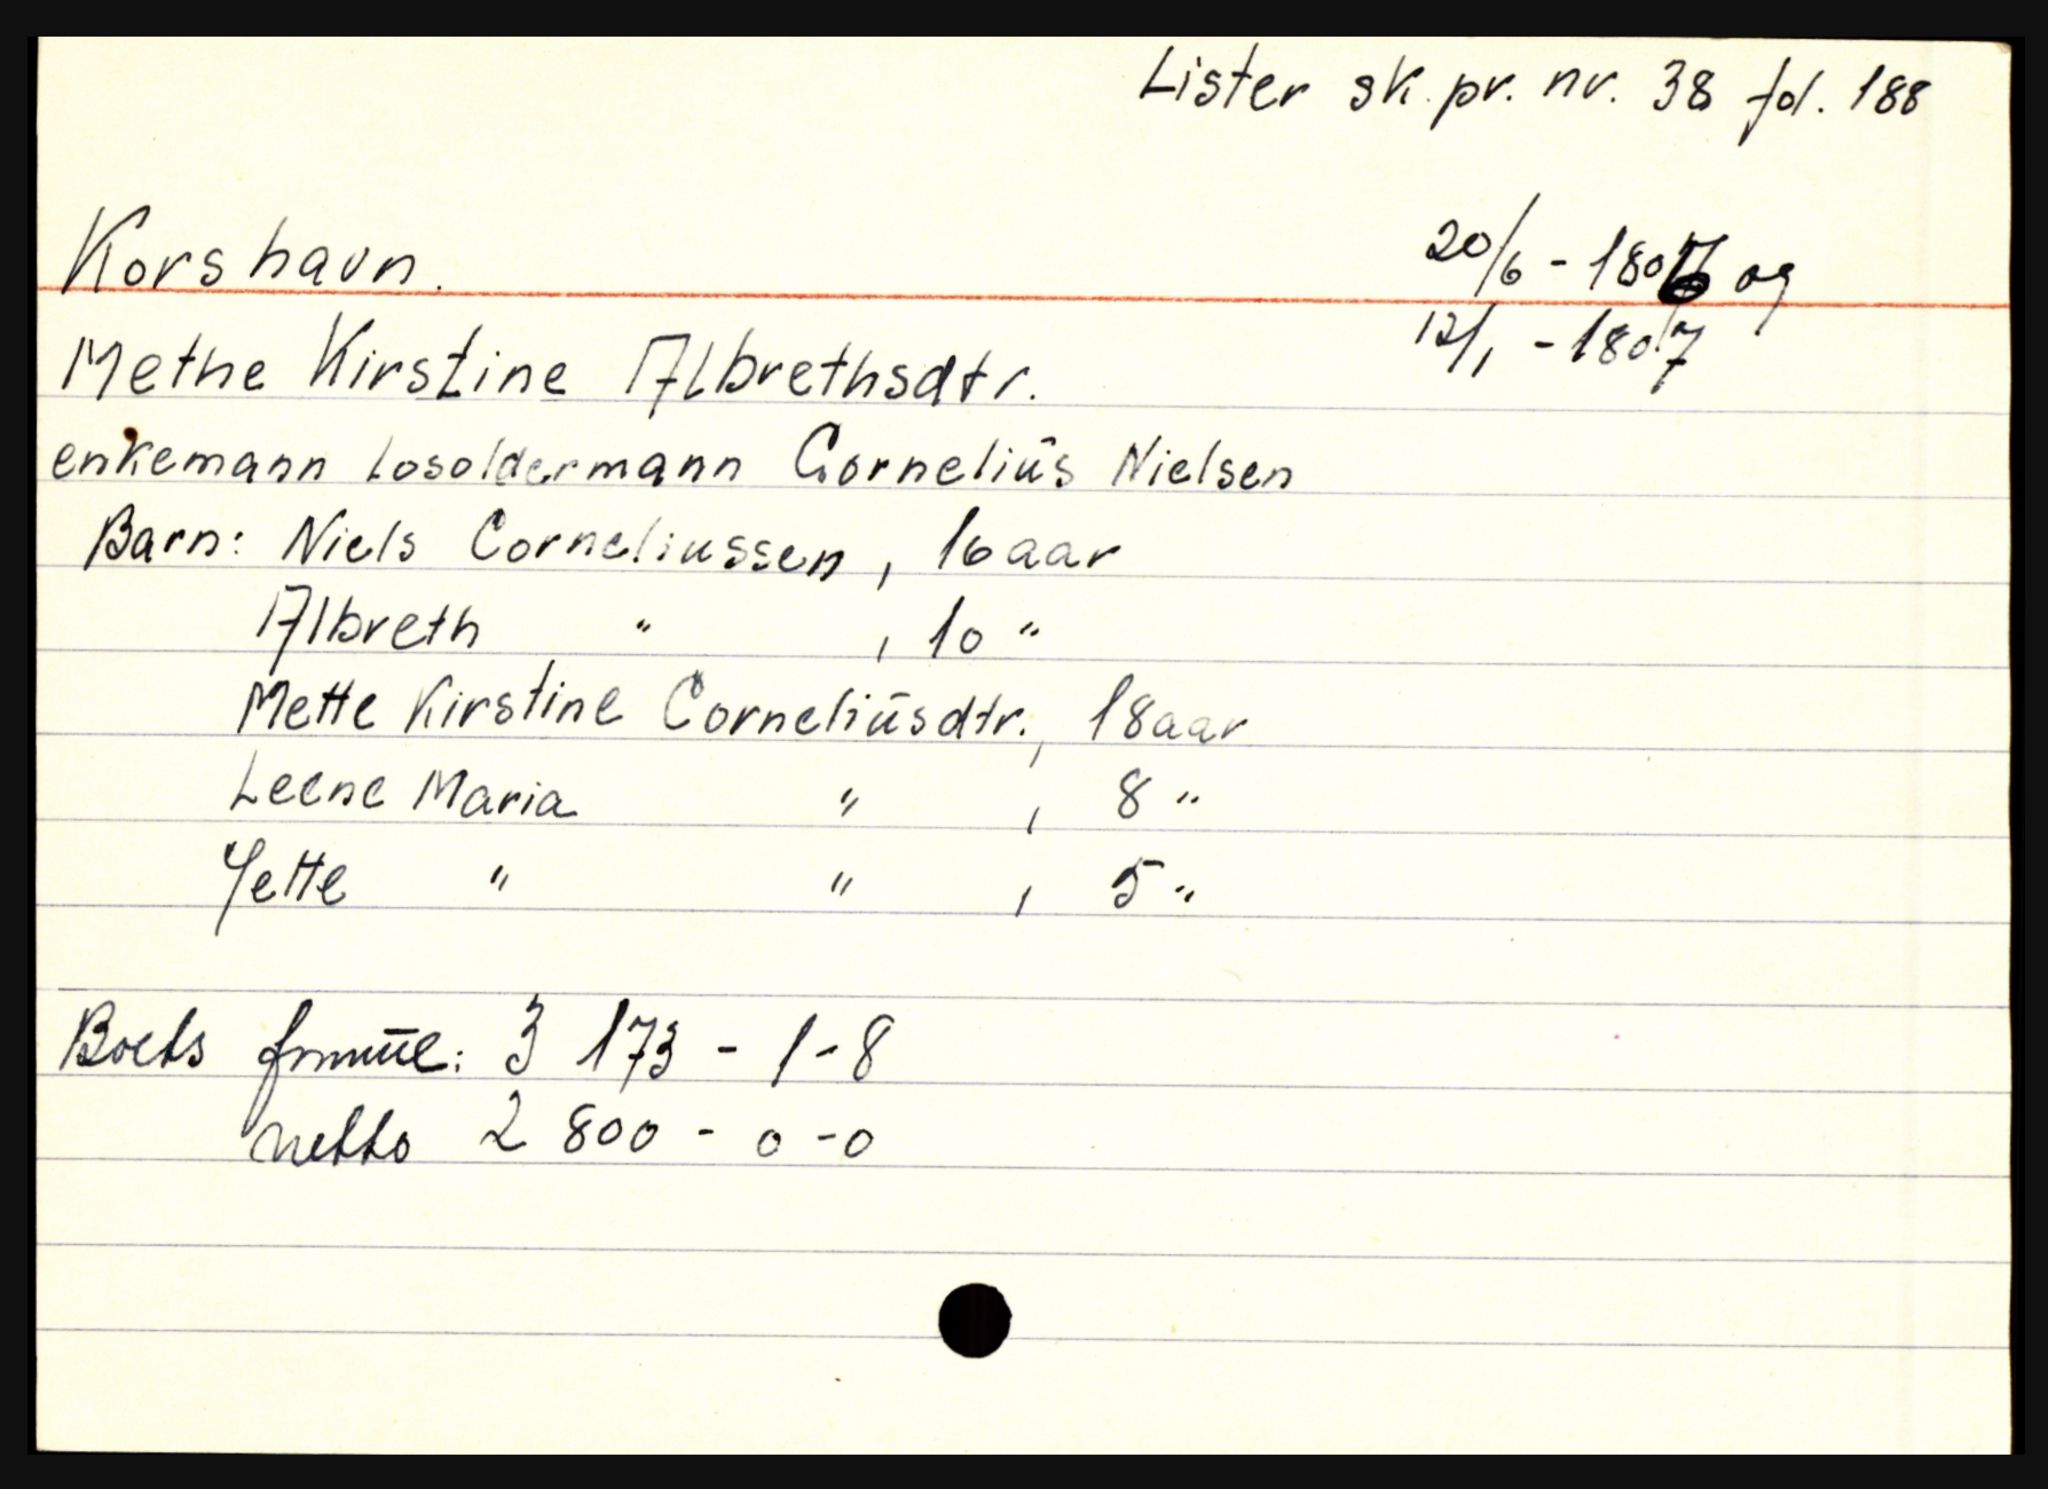 Lister sk. pr. nr. 38 fol. 188
Korshavn.
20/6 - 1806 og
12/1 - 1807
Methe Kirstine Albrethsdtr.
enkemann Losoldermann Cornelius Nielsen
Barn: Niels Corneliussen, 16 aar
Albreth " , 10 "
Mette Kirstine Corneliusdtr., 18 aar
Leene Maria " , 8 "
Jette " " , 5 "
Boets formue: 3 173 - 1 - 8
netto 2 800 - 0 - 0